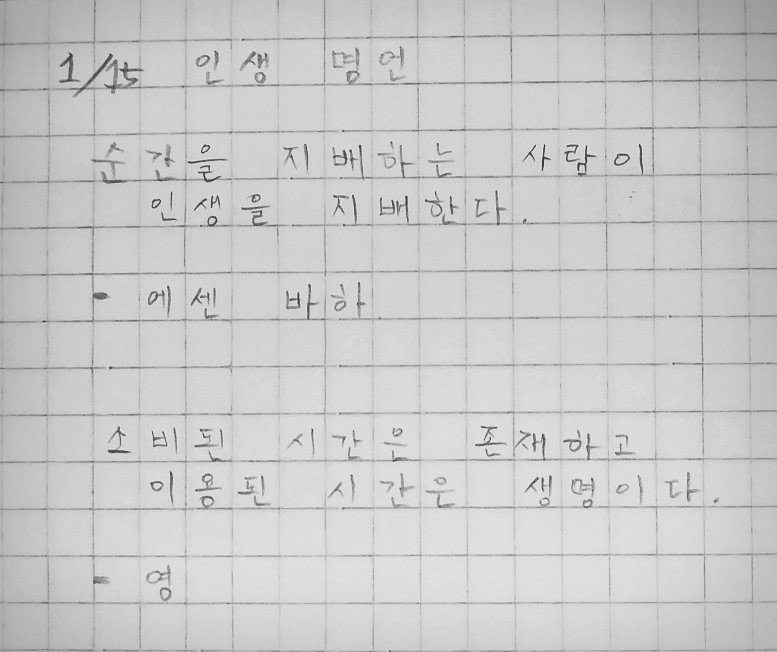 1/15 인생 명언
순간을 지배하는 사람이
인생을 지배한다.
- 에센 바하
소비된 시간은 존재하고
이용된 시간은 생명이다.
- 영